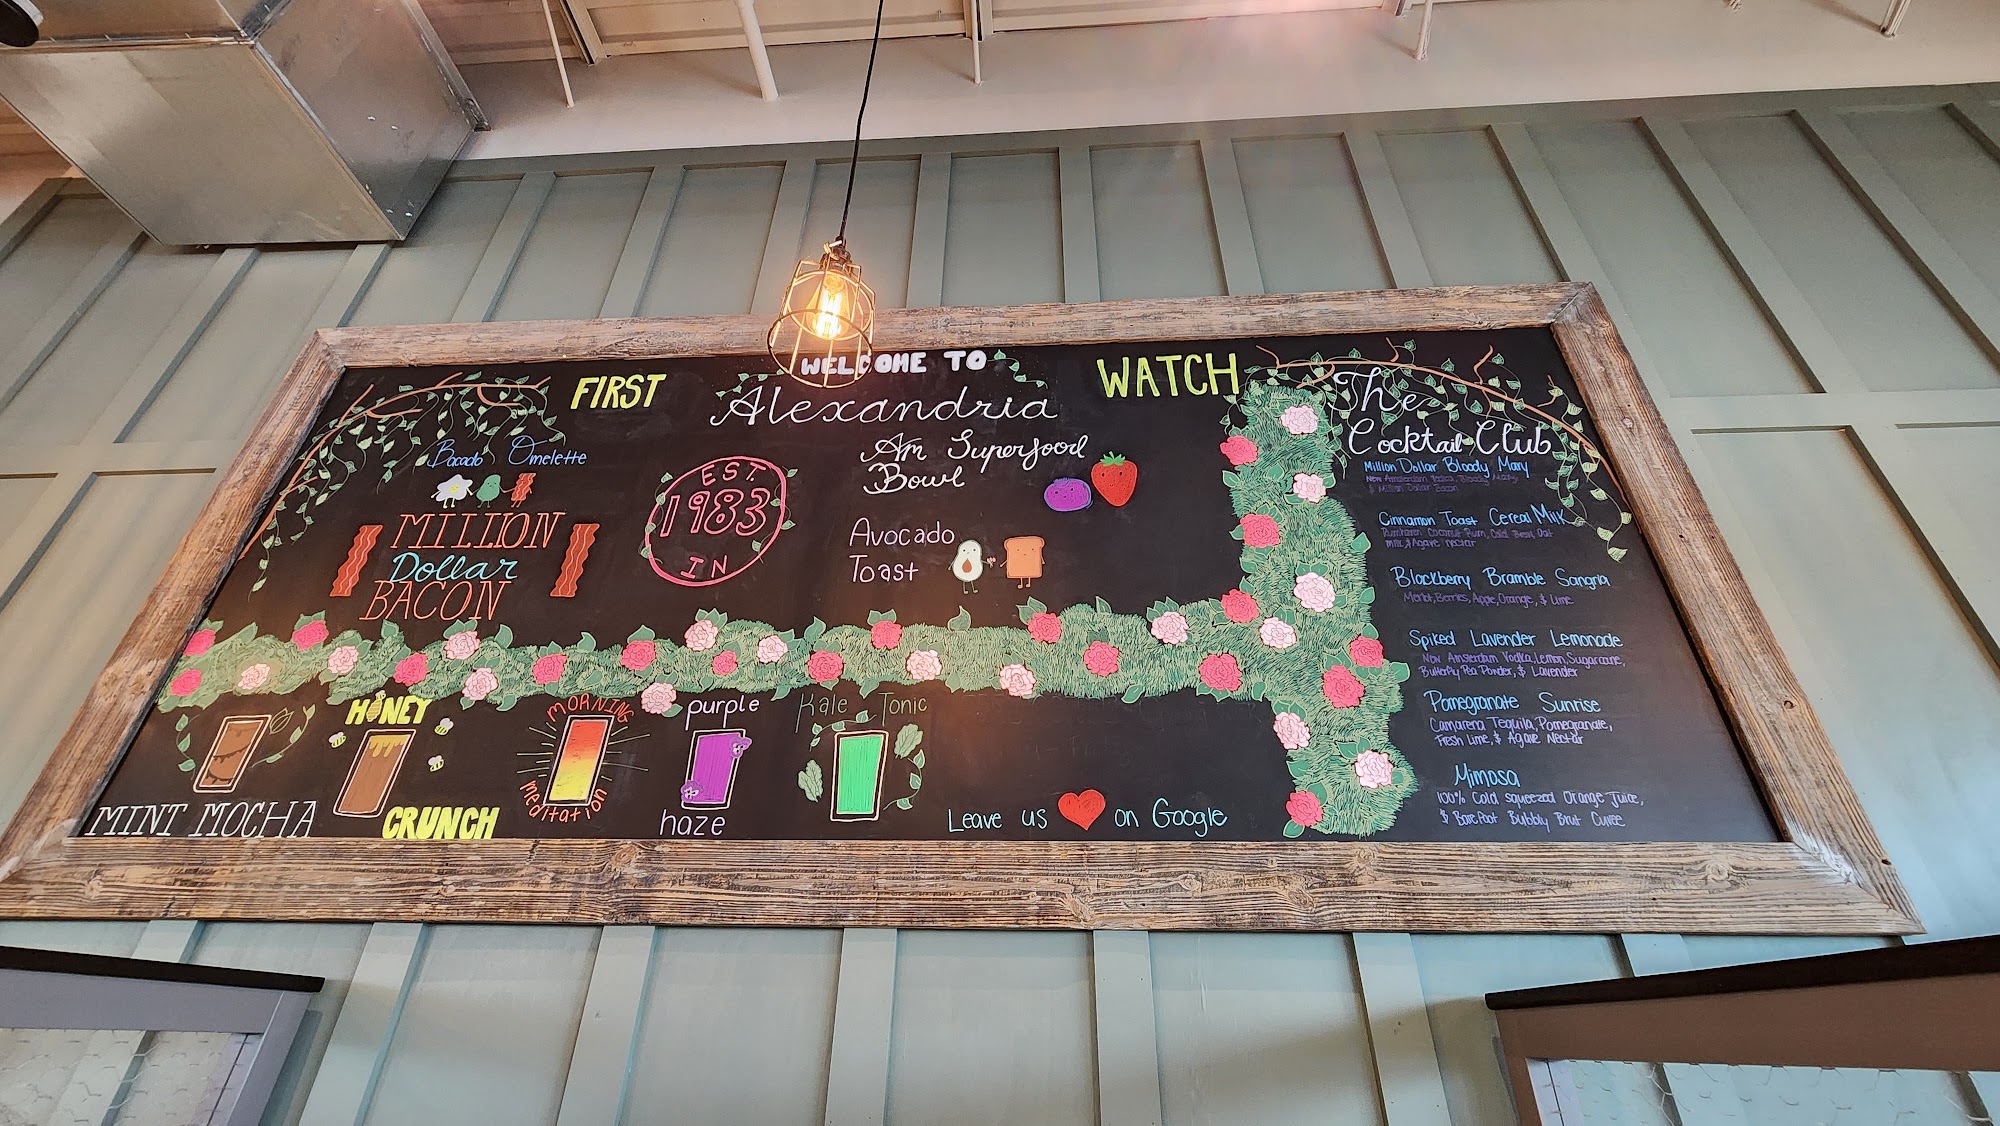 WELCOME TO
FIRST
WATCH
Alexandria
Bacado Omelette
MILLION
Dollar
BACON
EST.
1983
IN
Am Superfood
Bowl
Avocado
Toast
MINT MOCHA
HONEY
CRUNCH
MORNING
meditation
purple
haze
Kale Tonic
Leave us on Google
The
Cocktail Club
Million Dollar Bloody Mary
New Amsterdam Vodka, Bloody Mary
& Million Dollar Bacon
Cinnamon Toast Cereal Milk
Rumhaven Coconut Rum, Cold Brew, Oat
milk, & Agave nectar
Blackberry Bramble Sangria
Merlot, Berries, Apple, Orange, & Lime
Spiked Lavender Lemonade
New Amsterdam Vodka, Lemon, Sugarcane,
Butterfly Pea Powder, & Lavender
Pomegranate Sunrise
Camarena Tequila, Pomegranate,
Fresh Lime, & Agave Nectar
Mimosa
100% Cold squeezed Orange Juice,
& Barefoot Bubbly Brut Cuvee